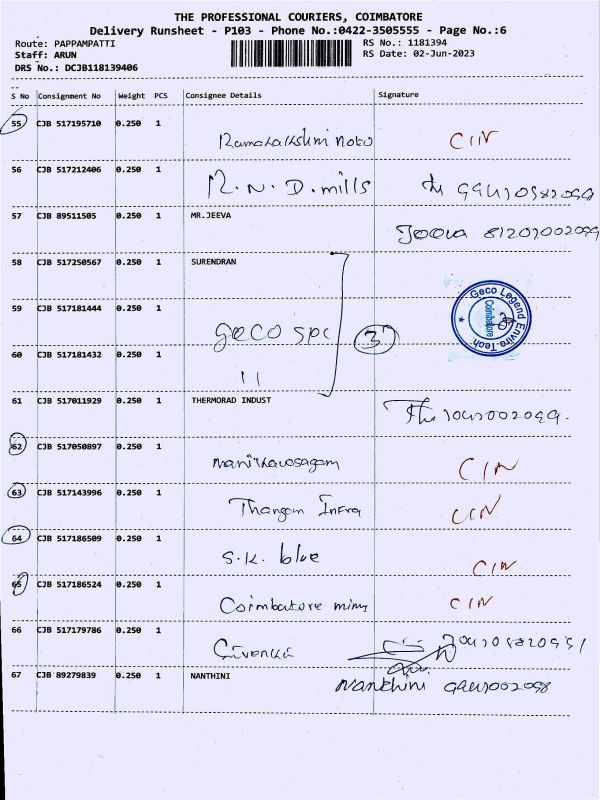 THE PROFESSIONAL COURIERS, COIMBATORE
Delivery Runsheet - P103 - Phone No.:0422-3505555 - Page No.:6
Route: PAPPAMPATTI RS No.: 1181394
Staff: ARUN RS Date: 02-Jun-2023
DRS No.: DCJB118139406
S No Consignment No Weight PCS Consignee Details Signature
55 CJB 517195710 0.250 1
CIN
56 CJB 517212406 0.250 1
M.N.D.mills
57 CJB 89511505 0.250 1 MR.JEEVA
Jeeva
58 CJB 517250567 0.250 1 SURENDRAN
59 CJB 517181444 0.250 1
Geco spc 3
Geco Legend Enviro Tech Coimbatore
60 CJB 517181432 0.250 1
11
61 CJB 517011929 0.250 1 THERMORAD INDUST
62 CJB 517050897 0.250 1
CIN
63 CJB 517143996 0.250 1
Thangam Infra CIN
64 CJB 517186509 0.250 1
S.K. blue CIN
65 CJB 517186524 0.250 1
Coimbatore CIN
66 CJB 517179786 0.250 1
67 CJB 89279839 0.250 1 NANTHINI
Nanthini